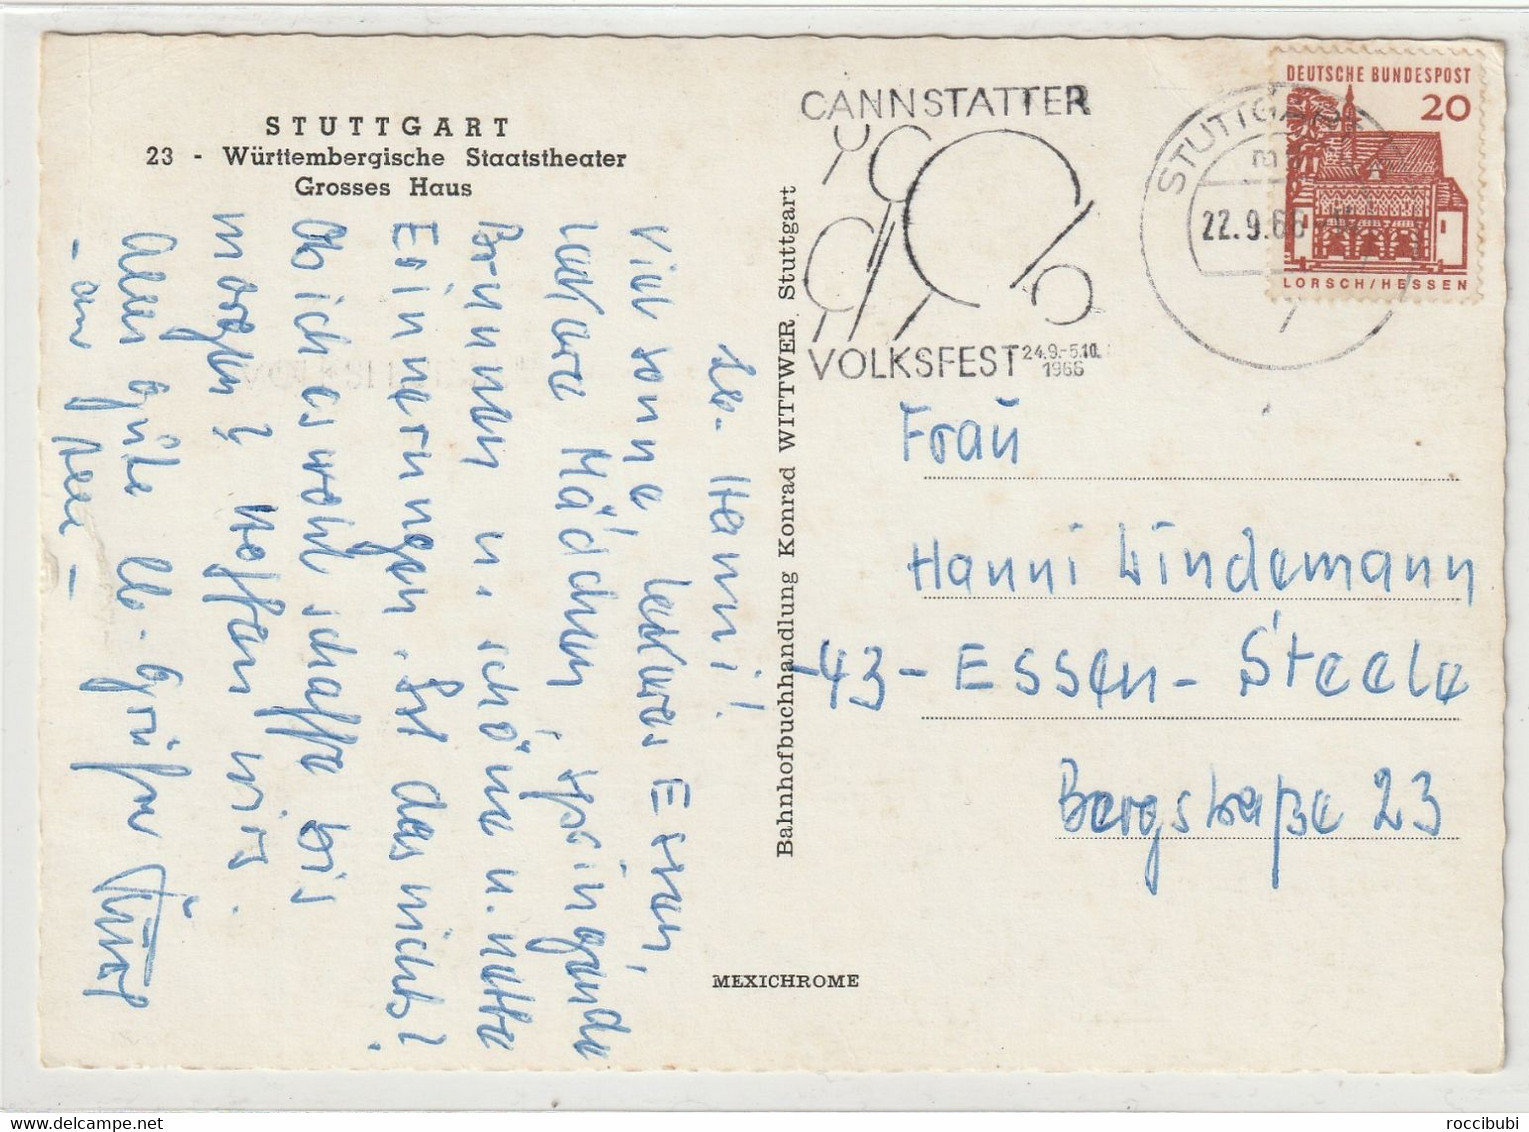 STUTTGART
23 - Württembergische Staatstheater
Grosses Haus
Lb. Hanni!
Viel Sonne, leckeres Essen,
leckere Mädchen, springende
Brunnen u. schöne u. nette
Erinnerungen. Ist das nichts?
Ob ich es wohl schaffe bis
morgen? Hoffen wir's.
Alles Gute lb. Grüße
- an
Bahnhofbuchhandlung Konrad WITTWER Stuttgart
MEXICHROME
CANNSTATTER
VOLKSFEST 24.9.-5.10.
1966
STUTTGART
22.9.66
DEUTSCHE BUNDESPOST
20
LORSCH/HESSEN
Frau
Hanni Windemann
-43-Essen-Steele
Bergstraße 23
roccibubi